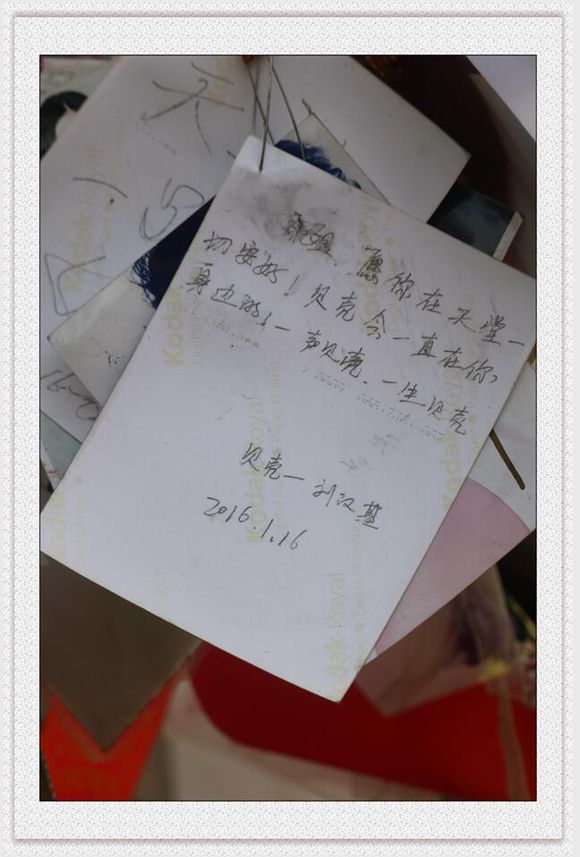 天
娜姐、愿你在天堂一
切安好!贝壳会一直在你
身边的!一声贝壳、一生贝壳
贝壳—刘汉基
2016.1.16
Kodak Royal
Kodak Royal
Kodak Royal